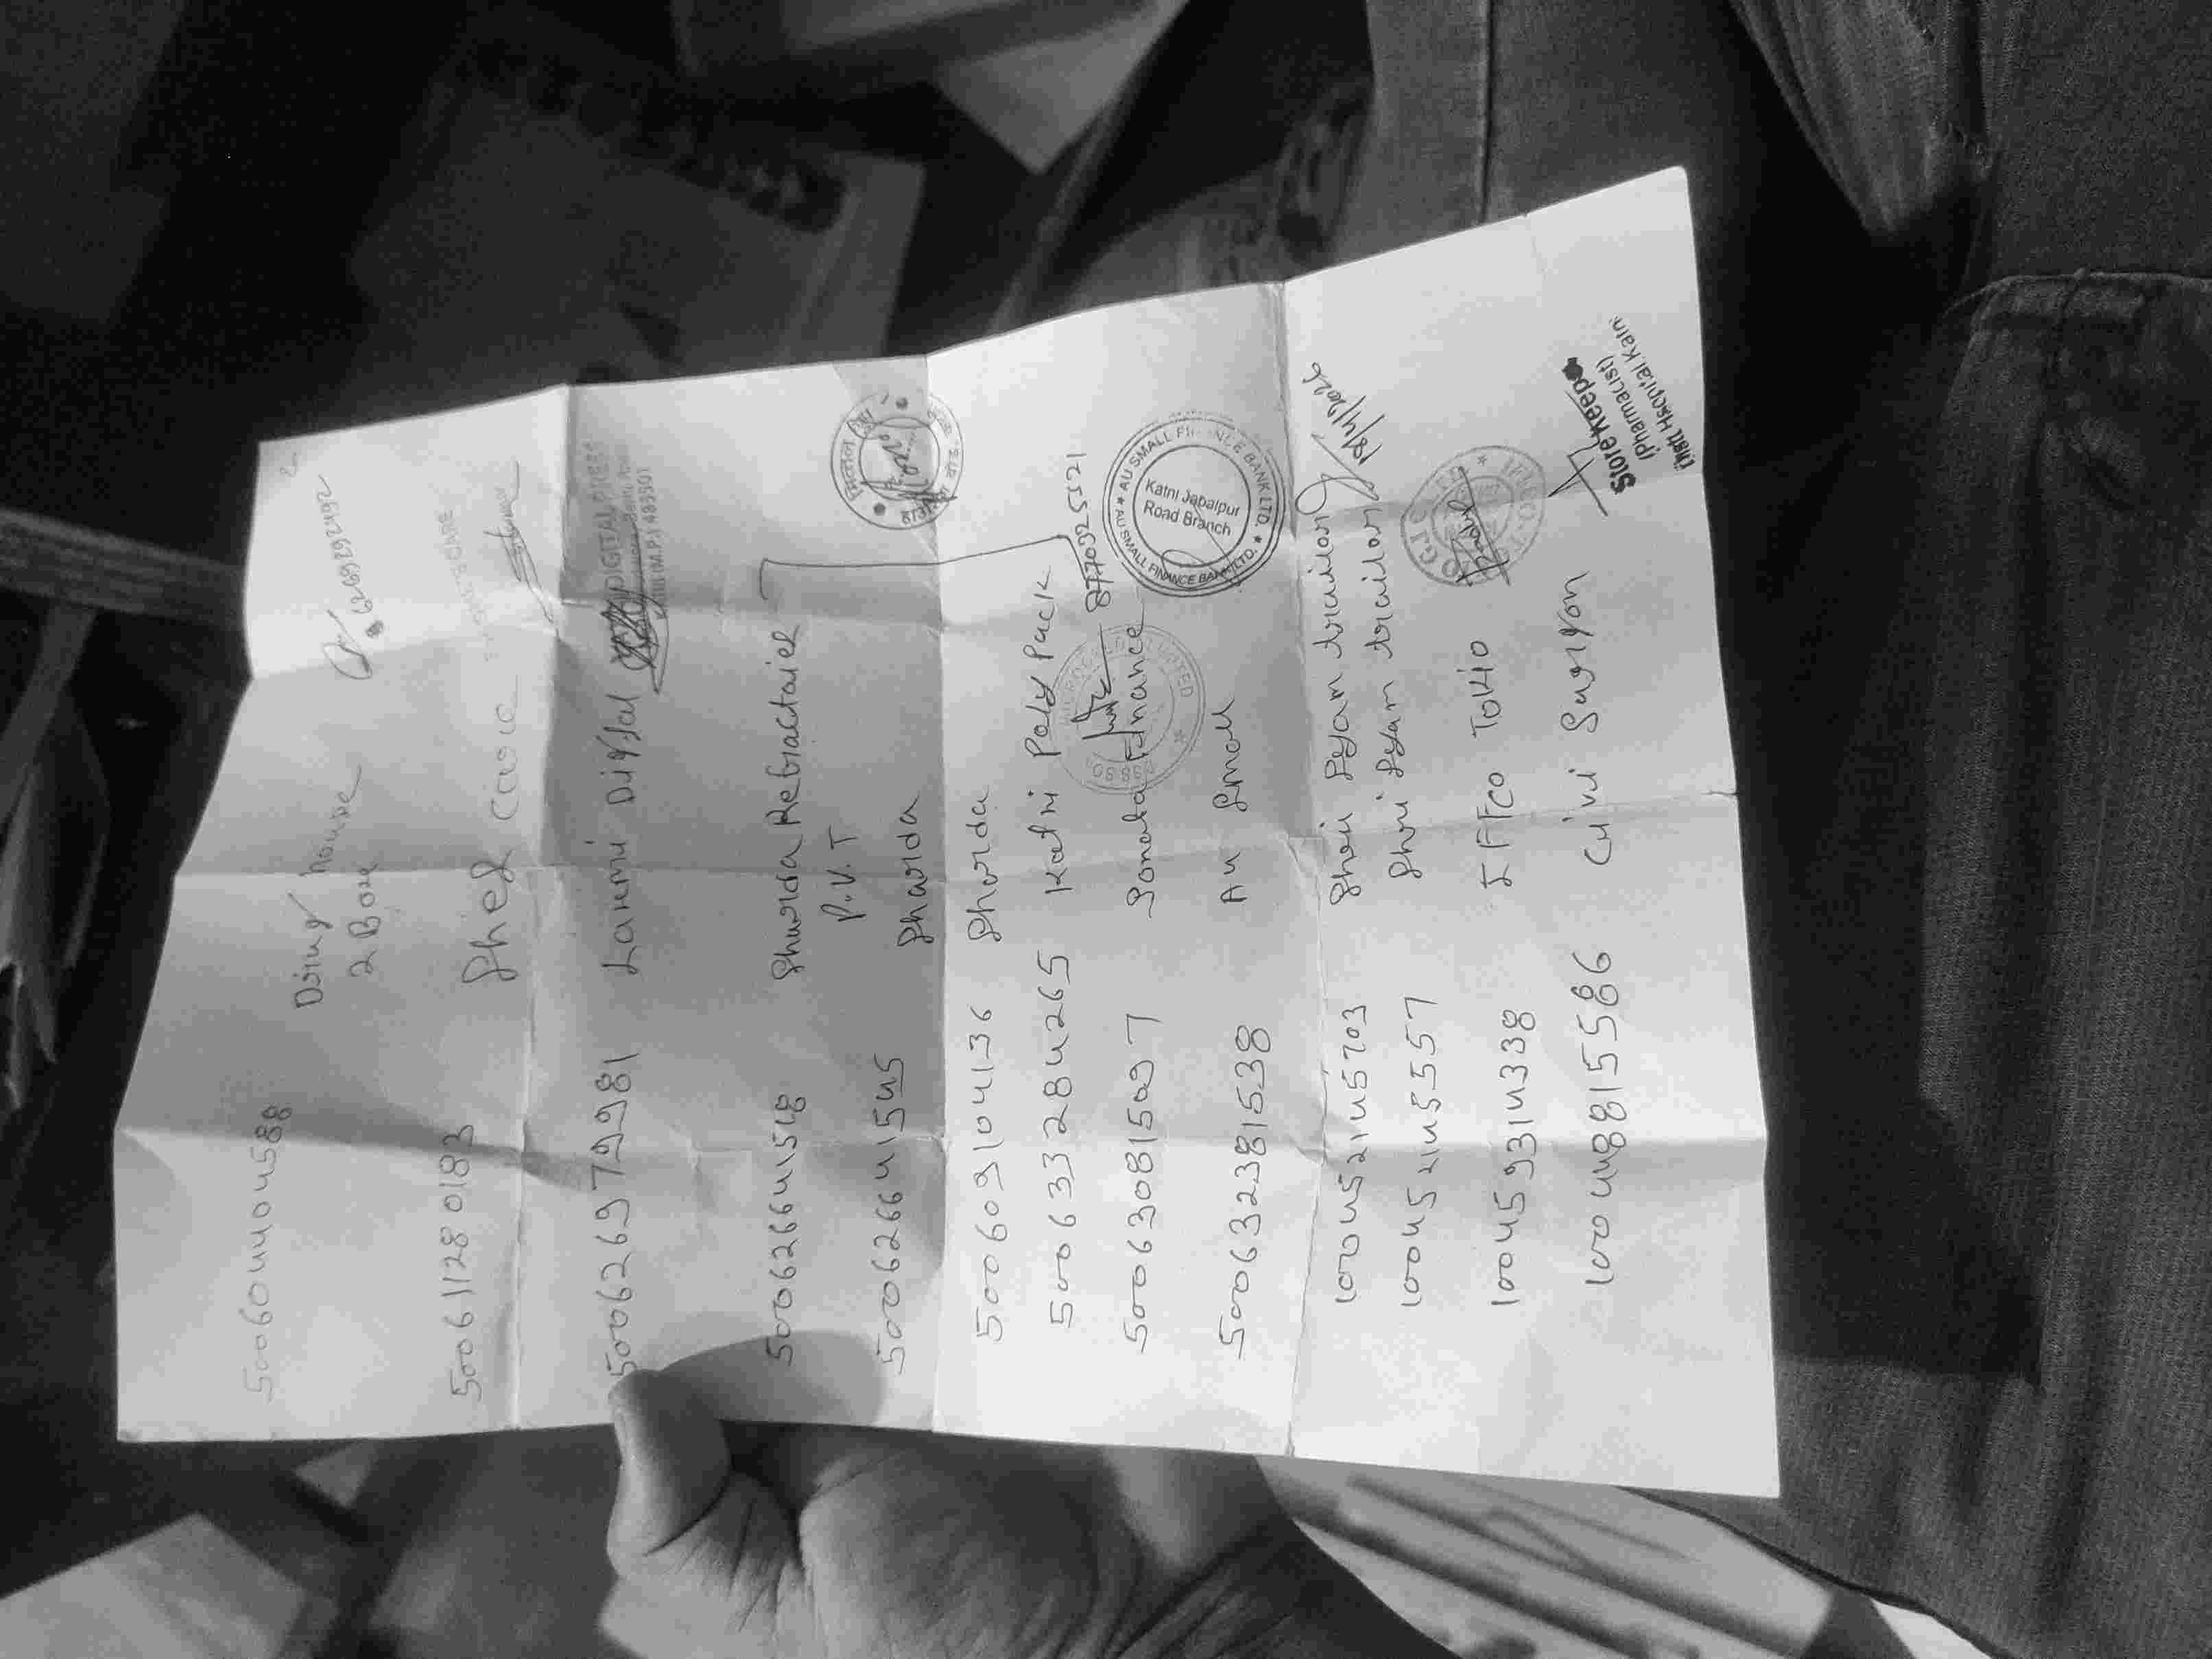 500604404588
Drug house
2 Box
6269292492
500611280183 Shel Care
CARE
500626979981 Laxmi Digital
DIGITAL PRESS
(M.P.) 483501
500626641518 Sharda Refractories
P.V.T
500626641545 Sharda
500609104136 Sharda
500633284265 Katni Poly Pack
8770325521
500630815097 Sonata Finance
500632381538 Au Small
★ AU SMALL FINANCE BANK LTD. ★ AU SMALL FINANCE BANK LTD.
Katni Jabalpur
Road Branch
100452145703 Shri Shyam trailor
18/4/2026
100452145557 Shri Shyam trailor
100459314338 IFFCO TOKIO
100448815586 Civil Surgon
Store Keeper
(Pharmacist)
Hospital Katni